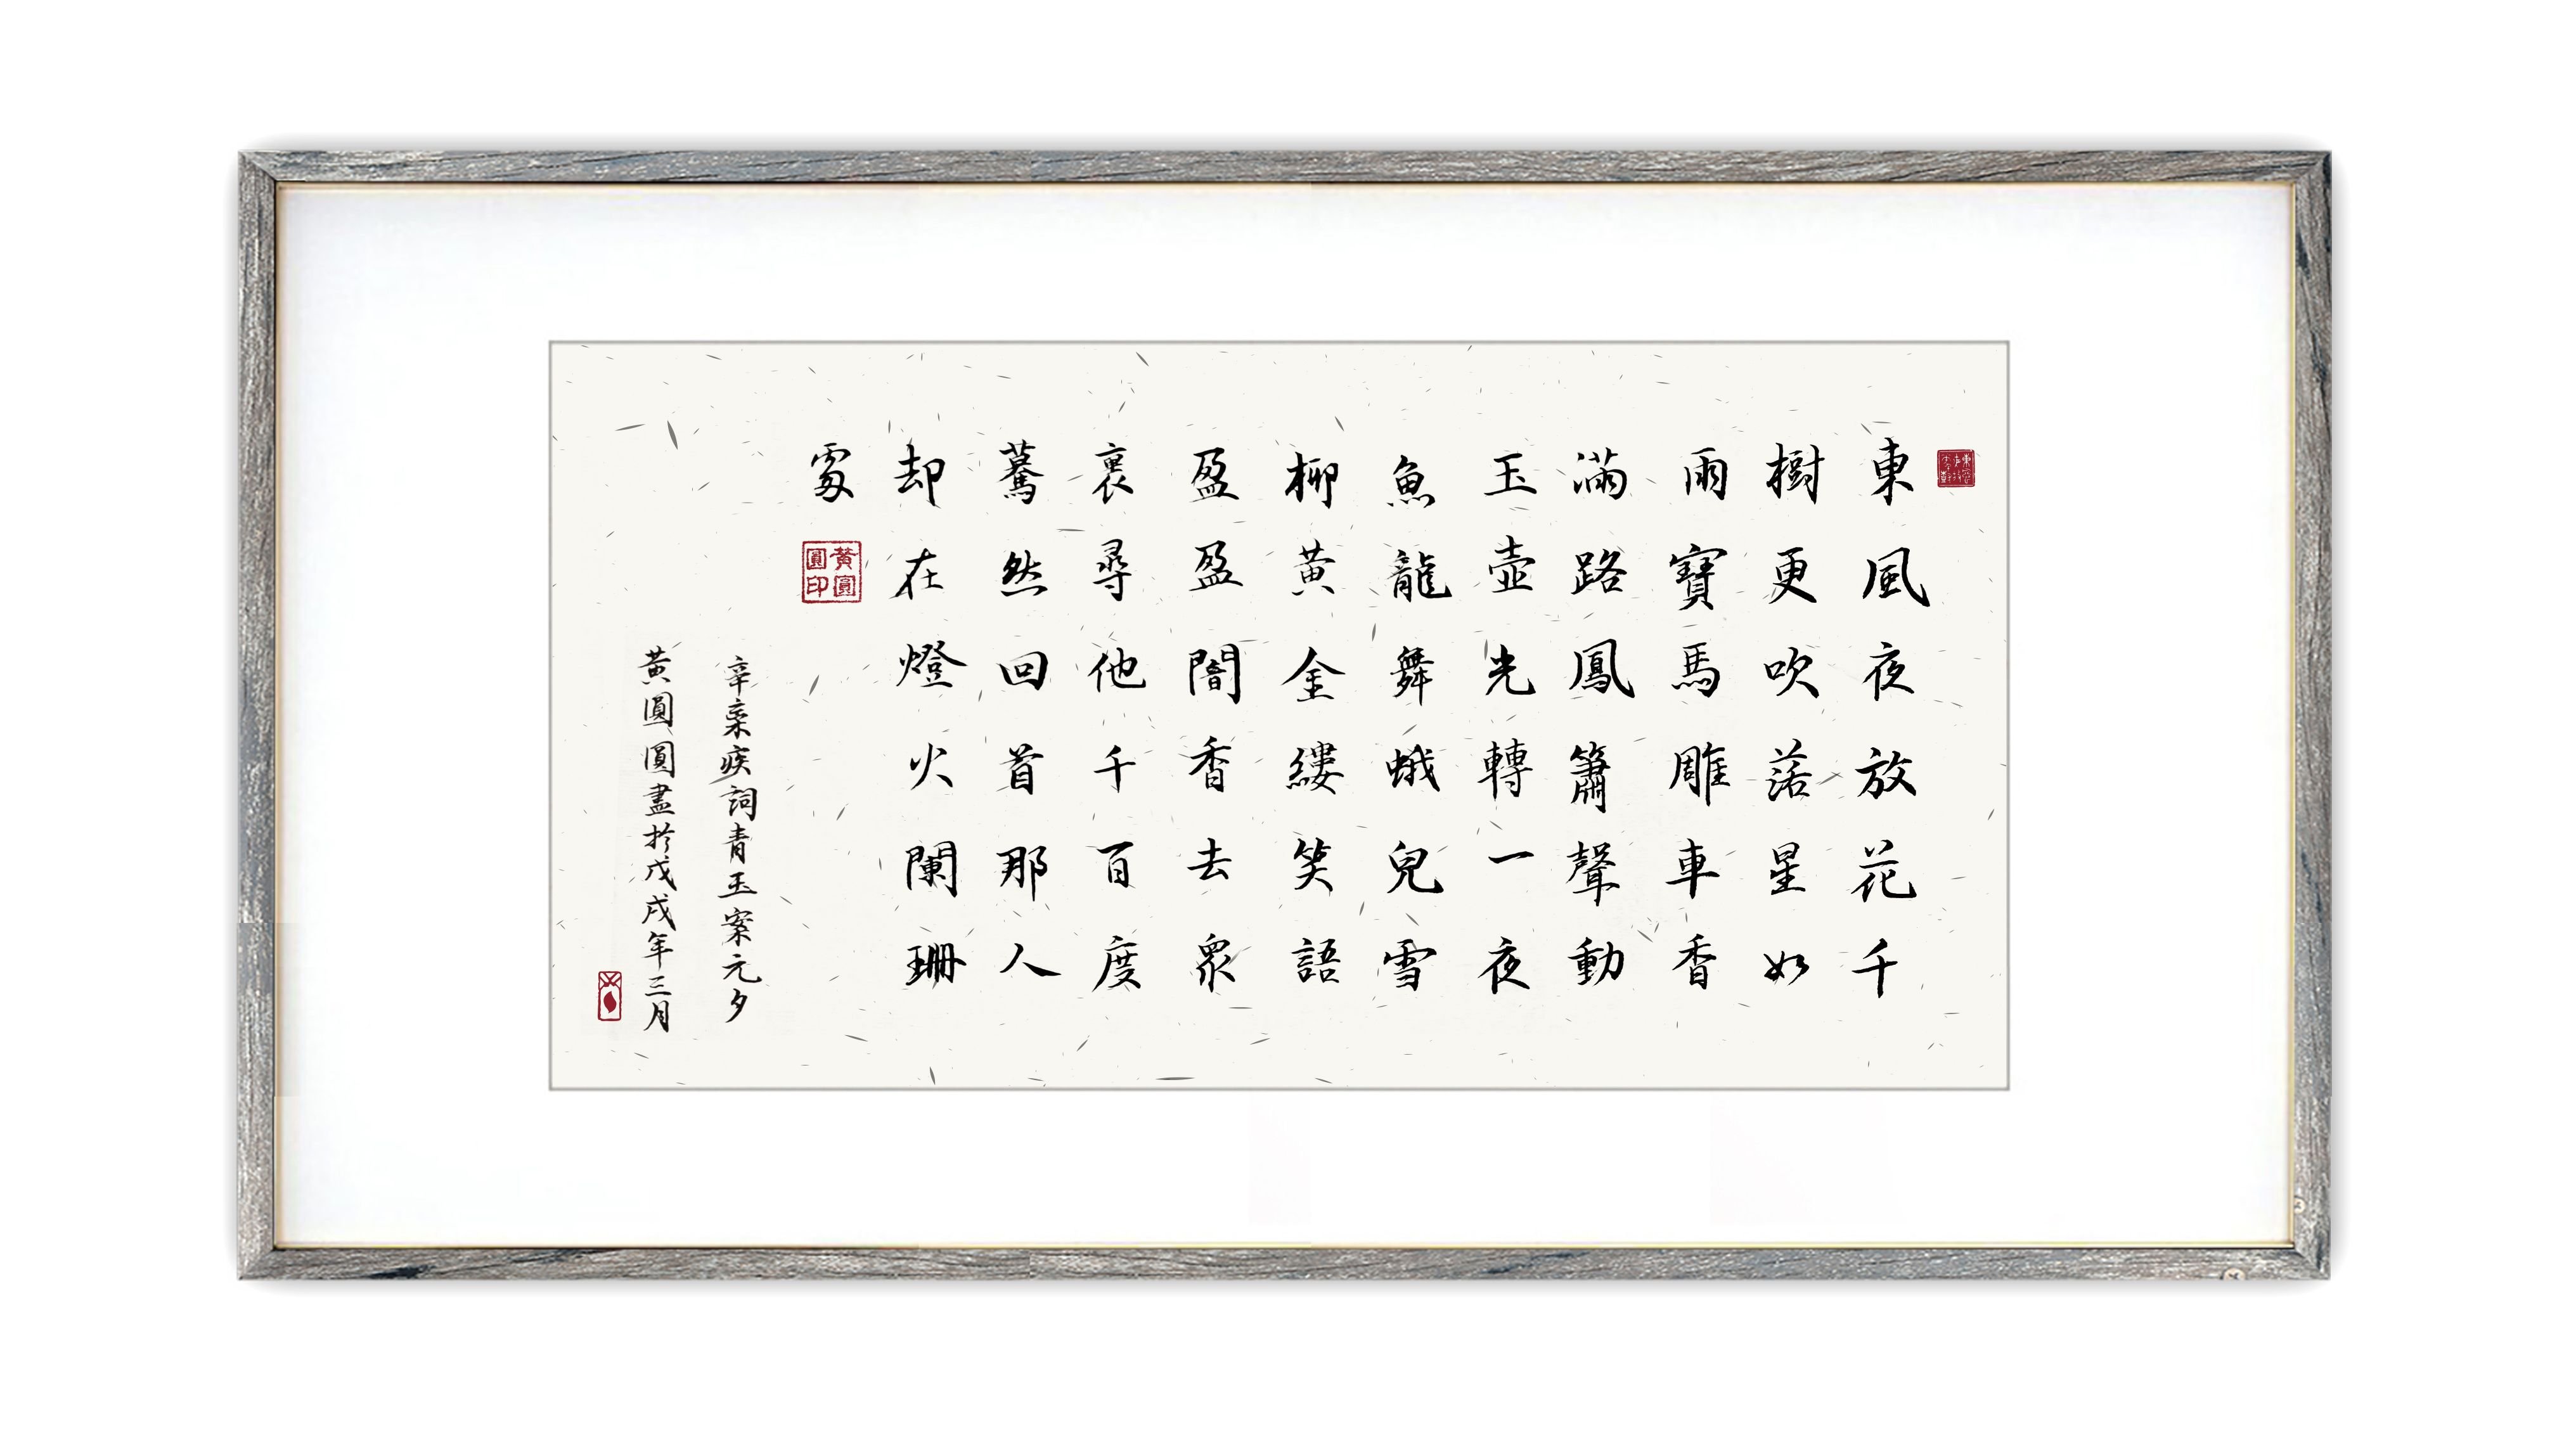 東風夜放花千
樹更吹落星如
雨寶馬雕車香
滿路鳳簫聲動
玉壺光轉一夜
魚龍舞蛾兒雪
柳黃金縷笑語
盈盈闇香去眾
裏尋他千百度
驀然回首那人
却在燈火闌珊
處
黃圓圓印
辛棄疾詞青玉案元夕
黃圓圓盡於戊戌年三月